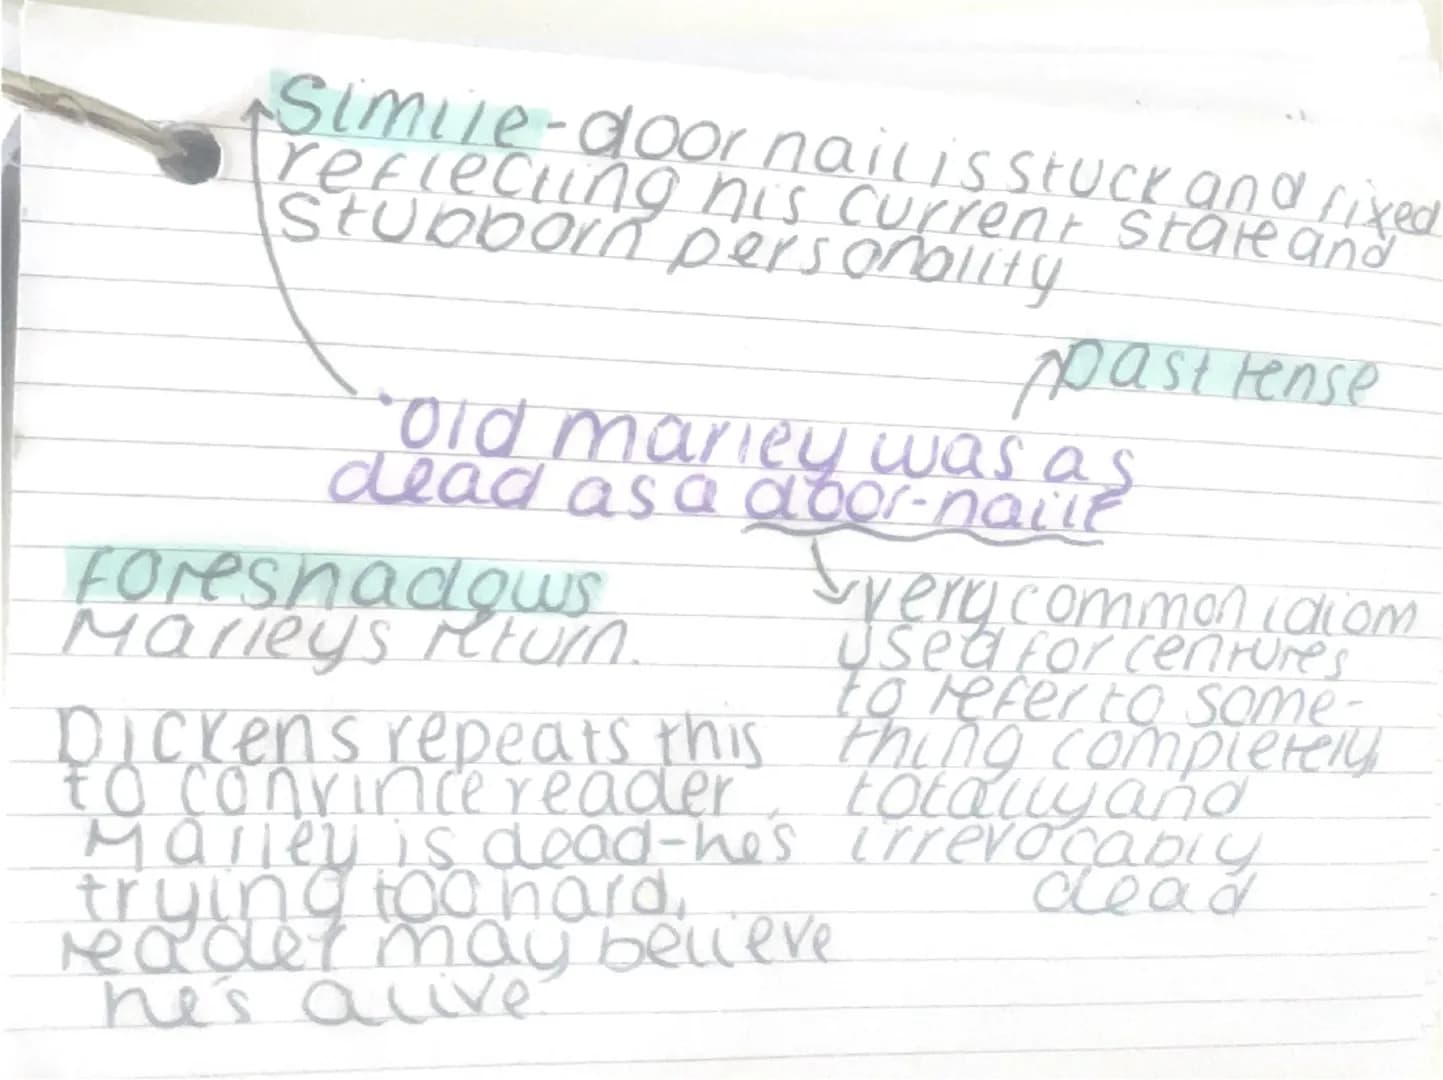 Simile - door nail is stuck and fixed
reflecting his current state and
stubborn personality
past tense
'Old marley was as
dead as a door-naile
foreshadows
Marleys return.
very common idiom
used for centures
to refer to some-
thing completely
totally and
irrevocably
dead
Dickens repeats this
to convince reader
Marley is dead-he's
trying too hard,
reader may believe
he's alive